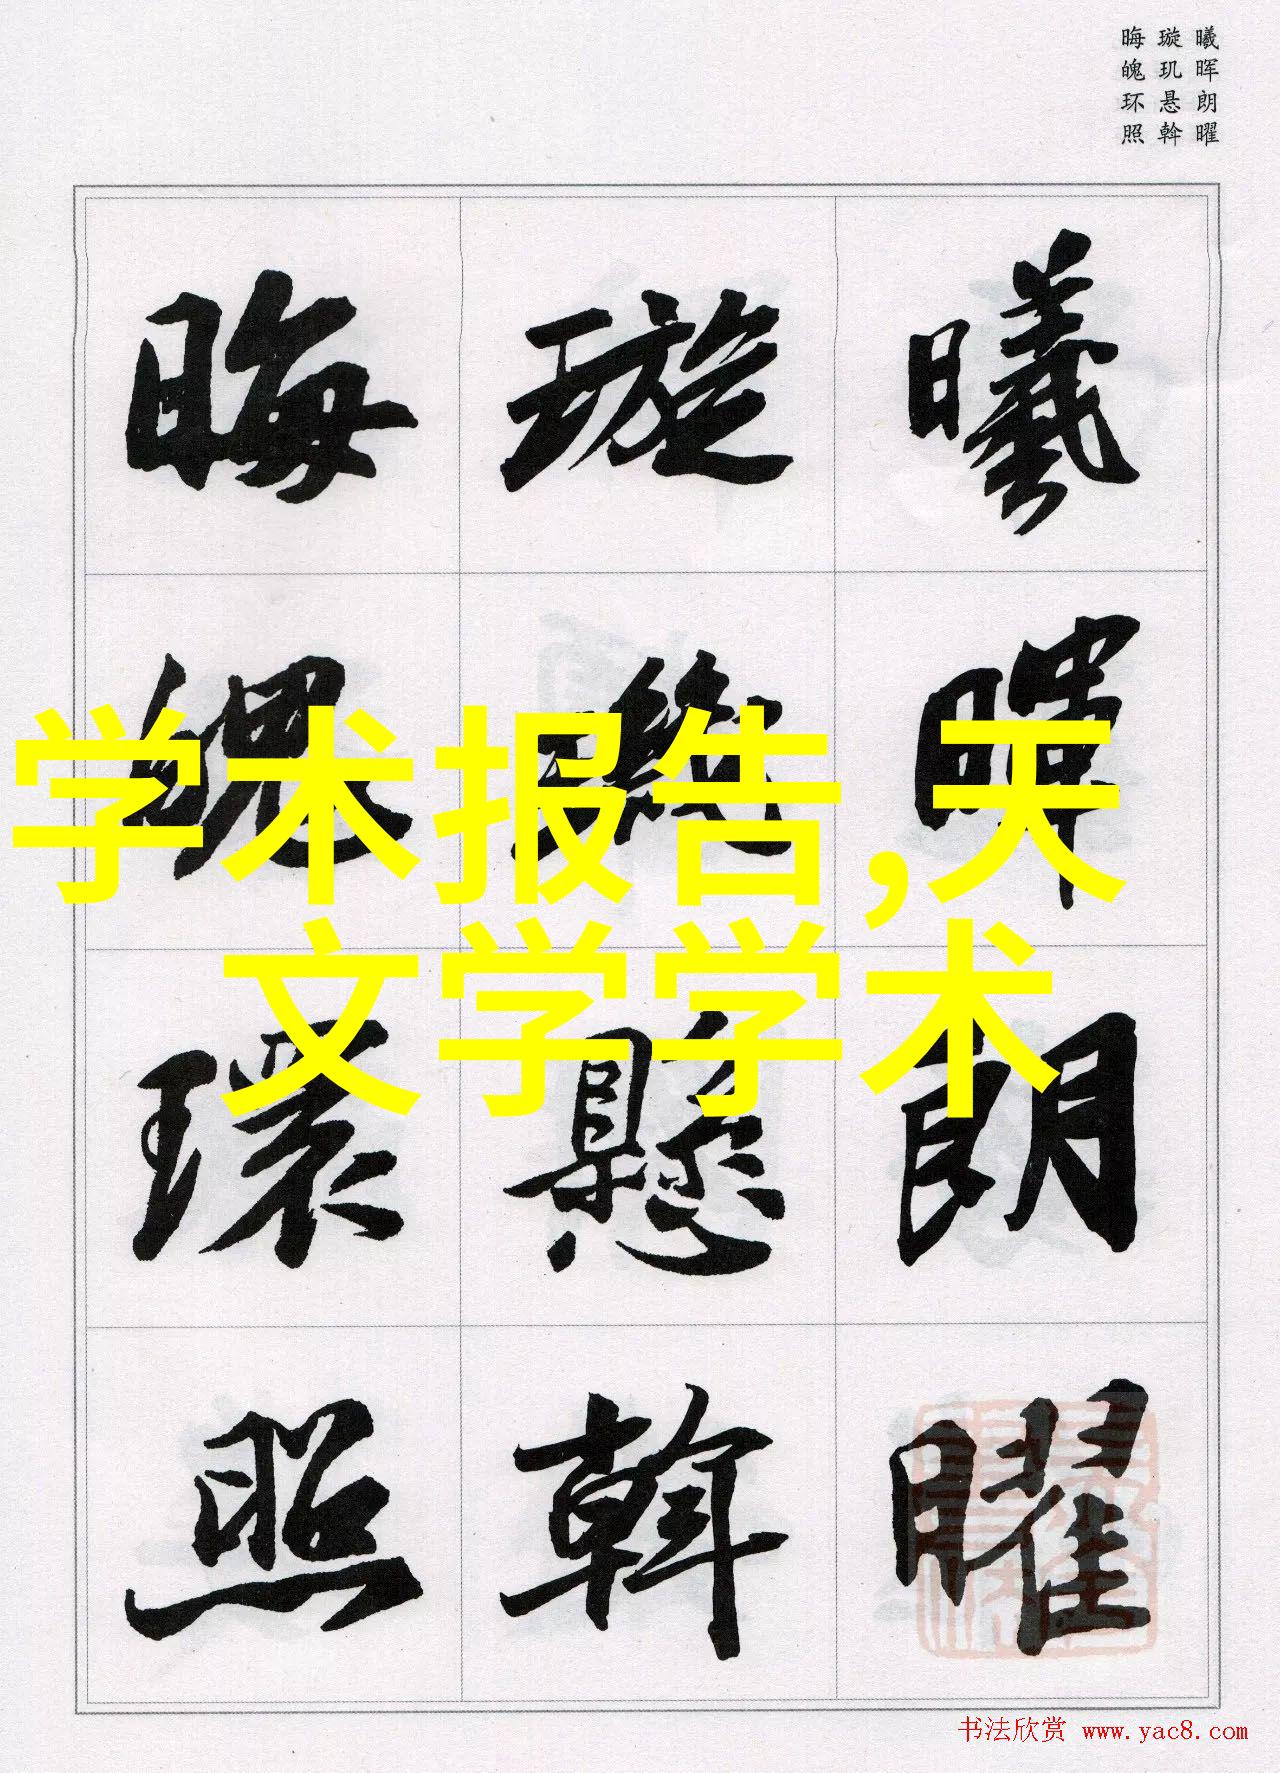 曦晖朗曜
璇玑悬斡
晦魄环照
曦暉朗曜
璇璣懸斡
晦魄環照
学术报告,天
文学学术
书法欣赏 www.yac8.com